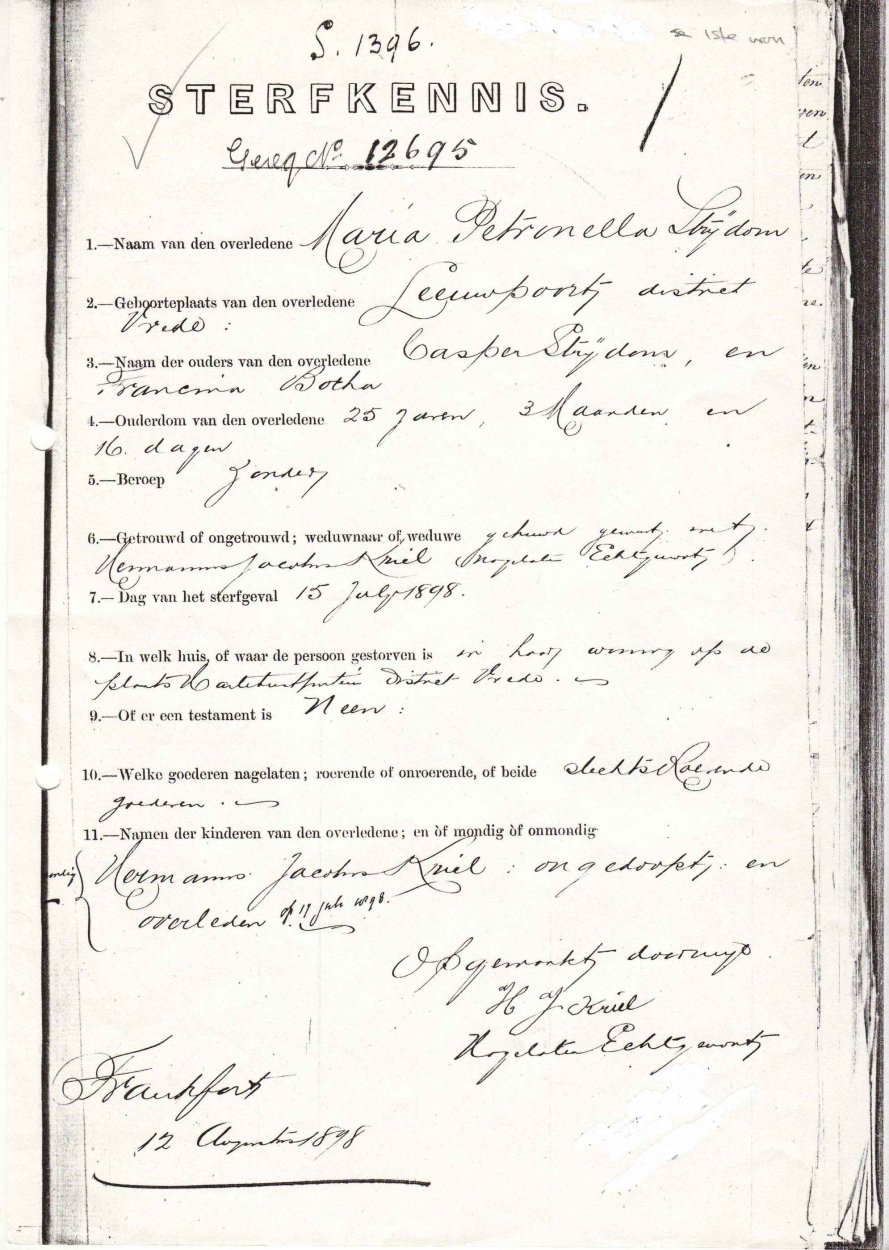 S. 1396.
STERFKENNIS.
Gereg No. 12695
1.—Naam van den overledene Maria Petronella Strijdom
2.—Geboorteplaats van den overledene Leeuwpoort district
Vrede :
3.—Naam der ouders van den overledene Casper Strijdom, en
Francina Botha
4.—Ouderdom van den overledene 25 Jaren, 3 Maanden en
16. dagen
5.—Beroep Zonder
6.—Getrouwd of ongetrouwd; weduwnaar of weduwe gehuwd geweest met
Hermanus Jacobus Kriel (Nagelaten Echtgenoot).
7.—Dag van het sterfgeval 15 July 1898.
8.—In welk huis, of waar de persoon gestorven is in haar woning op de
plaats Hartebeestfontein District Vrede.
9.—Of er een testament is Neen :
10.—Welke goederen nagelaten; roerende of onroerende, of beide slechts Roerende
goederen.
11.—Namen der kinderen van den overledene; en òf mondig òf onmondig
Hermanus Jacobus Kriel : ongedoopt : en
overleden op 17 Juli 1898.
Opgemaakt door mij
H J Kriel
Nagelaten Echtgenoot
Frankfort
12 Augustus 1898